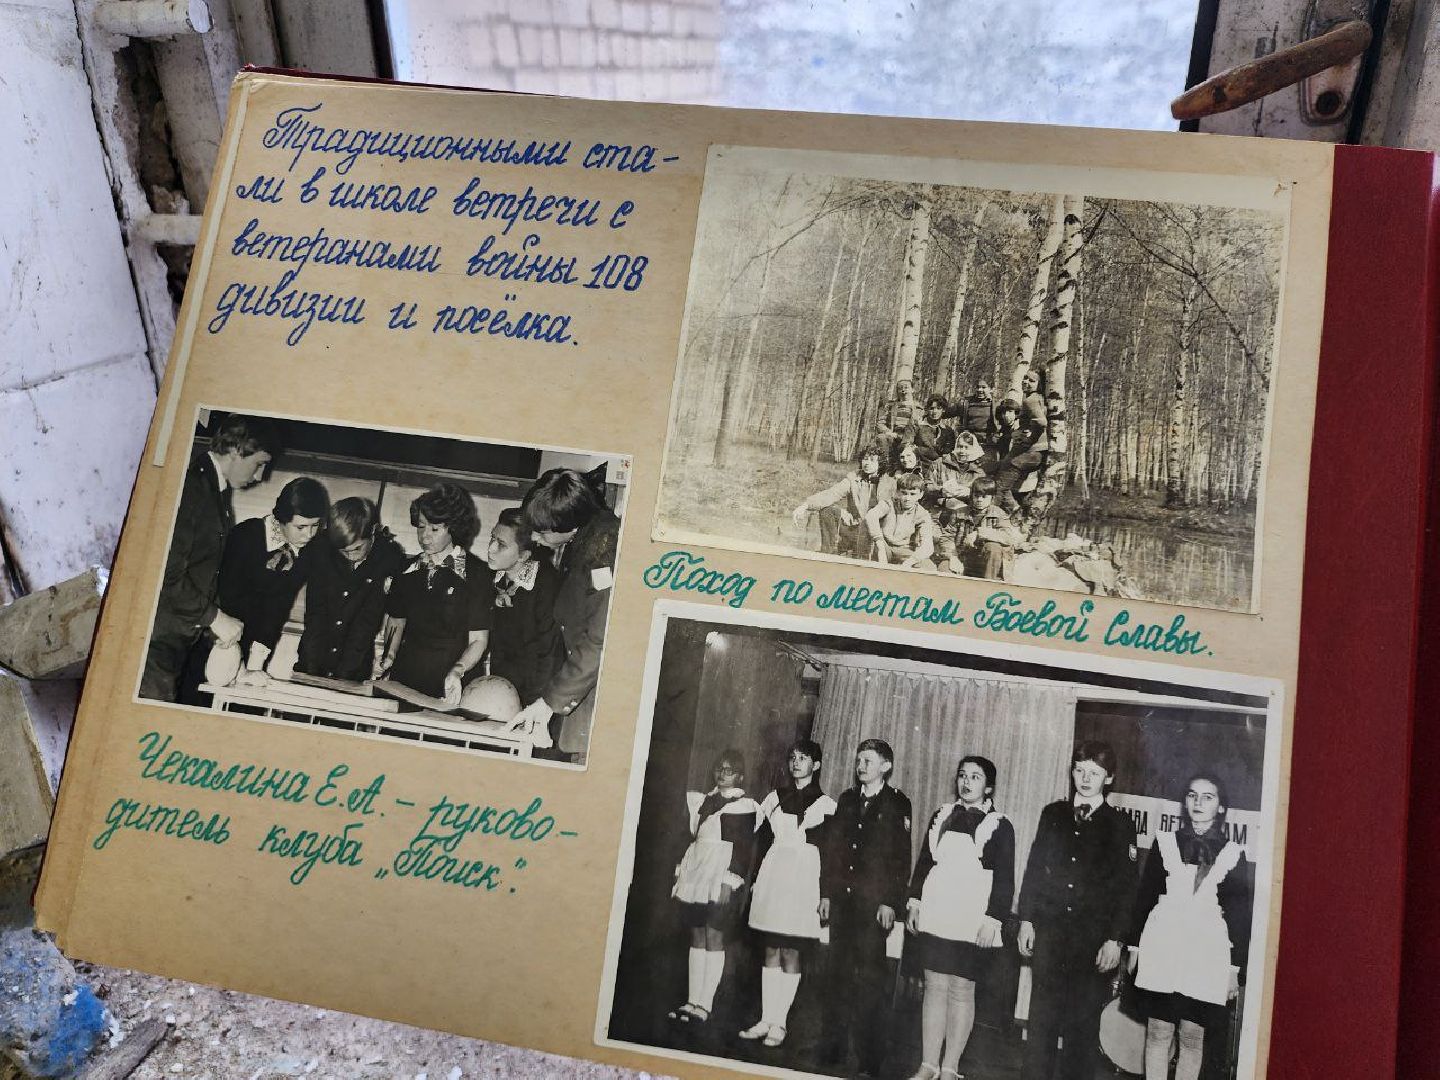 Традиционными ста-
ли в школе встречи с
ветеранами войны 108
дивизии и посёлка.
Поход по местам Боевой Славы.
Чекалина Е.А. – руково-
дитель клуба „Поиск".